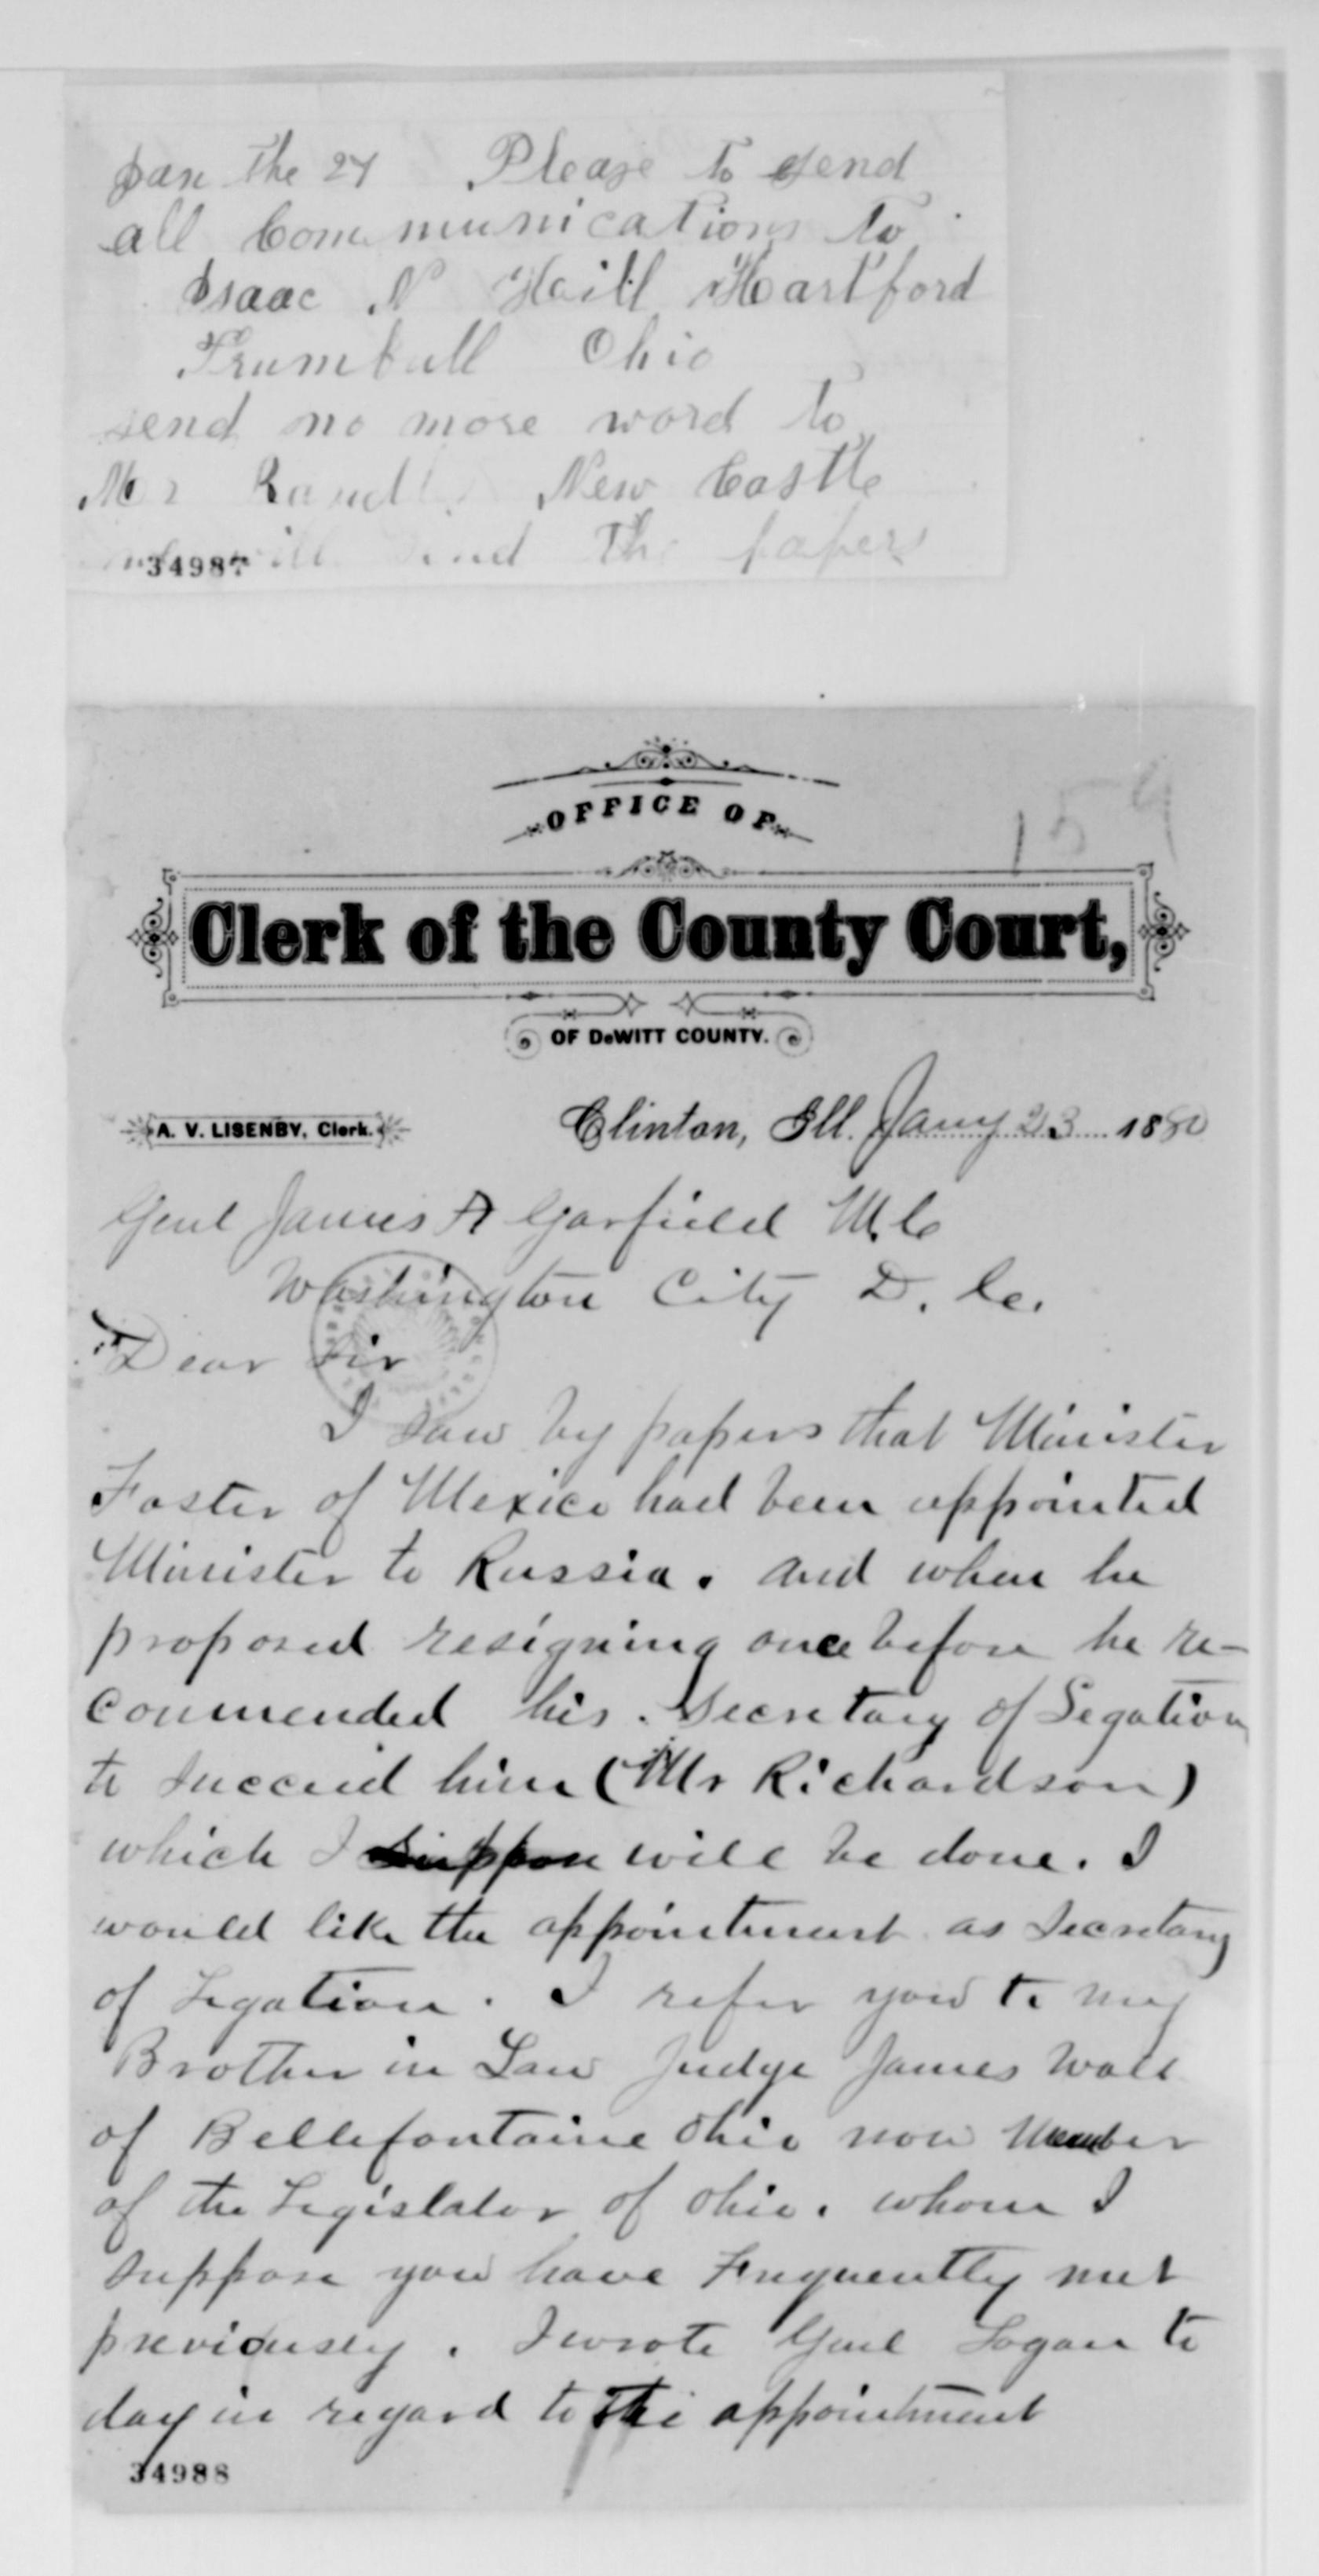 Jan the 24 Please to send
all Communications to
Isaac N Haill Hartford
Trumbull Ohio
send no more word to
Mr New Castle
will send the papers
34987
159
OFFICE OF
Clerk of the County Court,
OF DeWITT COUNTY.
A. V. LISENBY, Clerk.
Clinton, Ill. Jany 23 1880
Genl James A Garfield M.C
Washington City D. C.
Dear Sir
I saw by papers that Minister
Foster of Mexico had been appointed
Minister to Russia. and when he
proposed resigning once before he re-
commended his Secretary of Legation
to succeed him (Mr Richardson)
which I suppose will be done. I
would like the appointment as Secretary
of Legation. I refer you to my
Brother in Law Judge James Wall
of Bellefontaine Ohio now Member
of the Legislator of Ohio. whom I
suppose you have Frequently met
previously. I wrote Genl Logan to
day in regard to the appointment
34988